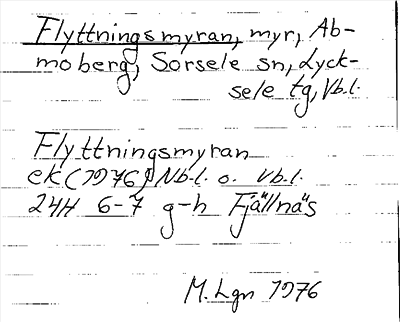 Flyttningsmyran, myr, Ab-
moberg, Sorsele sn, Lyck-
sele tg, Vb.l.
Flyttningsmyran
ek (1976) Nb.l. o. Vb.l.
24H 6-7 g-h Fjällnäs
M. Lgn 1976